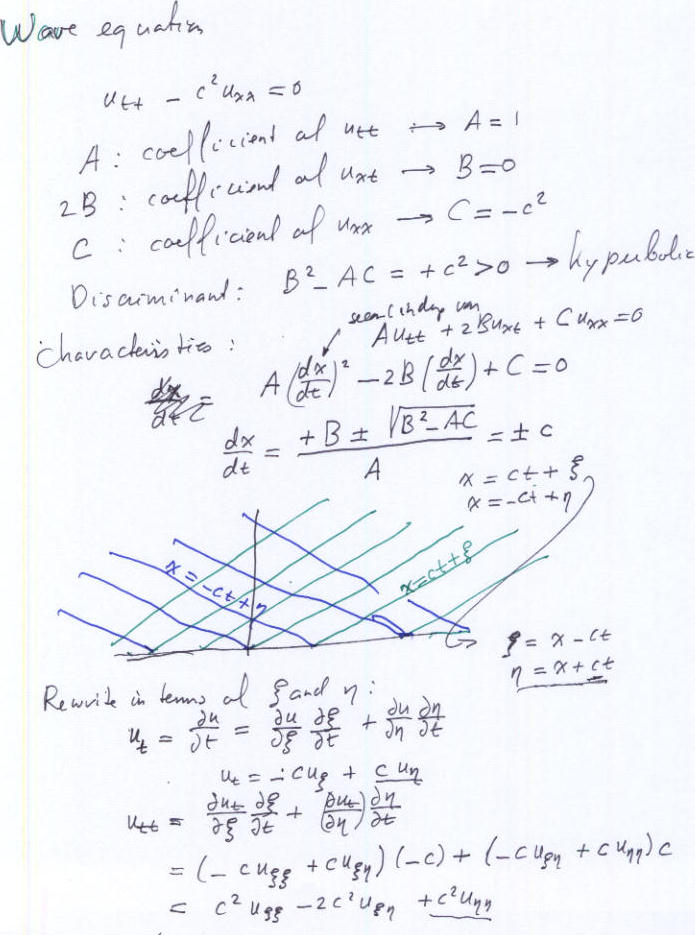 Wave equation
u_tt − c² u_xx = 0
A : coefficient of u_tt → A = 1
2B : coefficient of u_xt → B = 0
C : coefficient of u_xx → C = −c²
Discriminant : B² − AC = +c² > 0 → hyperbolic
A u_tt + 2B u_xt + C u_xx = 0
Characteristics : A (dx/dt)² − 2B (dx/dt) + C = 0
dx/dt = (+B ± √(B² − AC)) / A = ± c
x = ct + ξ
x = −ct + η
x = −ct + η
x = ct + ξ
ξ = x − ct
η = x + ct
Rewrite in terms of ξ and η :
u_t = ∂u/∂t = ∂u/∂ξ ∂ξ/∂t + ∂u/∂η ∂η/∂t
u_t = −c u_ξ + c u_η
u_tt = ∂u_t/∂ξ ∂ξ/∂t + (∂u_t/∂η) ∂η/∂t
= (− c u_ξξ + c u_ξη) (−c) + (−c u_ξη + c u_ηη) c
= c² u_ξξ − 2c² u_ξη + c² u_ηη